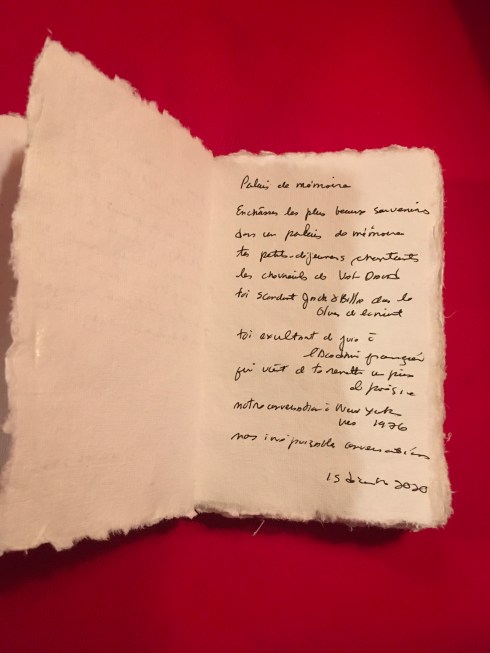 Palais de mémoire
Enchâsser les plus beaux souvenirs
dans un palais de mémoire
tes petits-déjeuners chantants
les chevreuils de Val David
toi scandant Jack
toi exultant de joie à
l'Académie française
qui vient de te remettre un prix
de poésie
notre conversation à New York
vers 1976
nos inépuisables conversations
15 décembre 2020